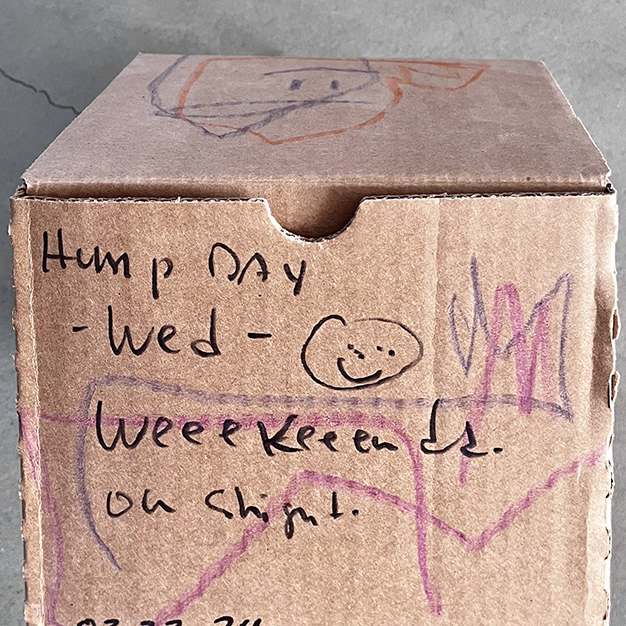 Hump DAy
- Wed -
Weeekeeends.
oh shight.